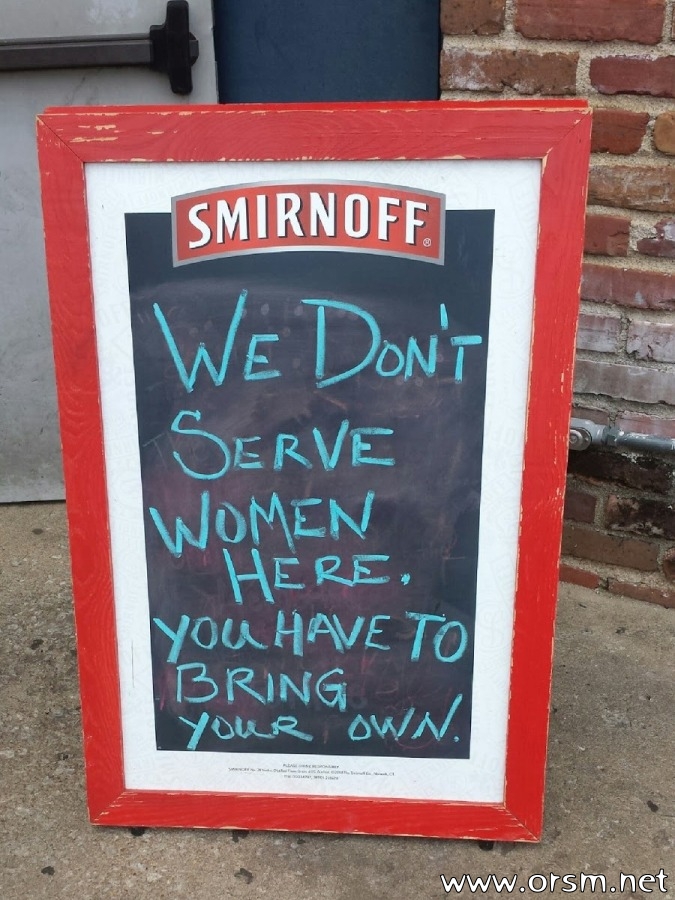 SMIRNOFF®
WE DON'T
SERVE
WOMEN
HERE.
YOU HAVE TO
BRING
YOUR OWN.
www.orsm.net